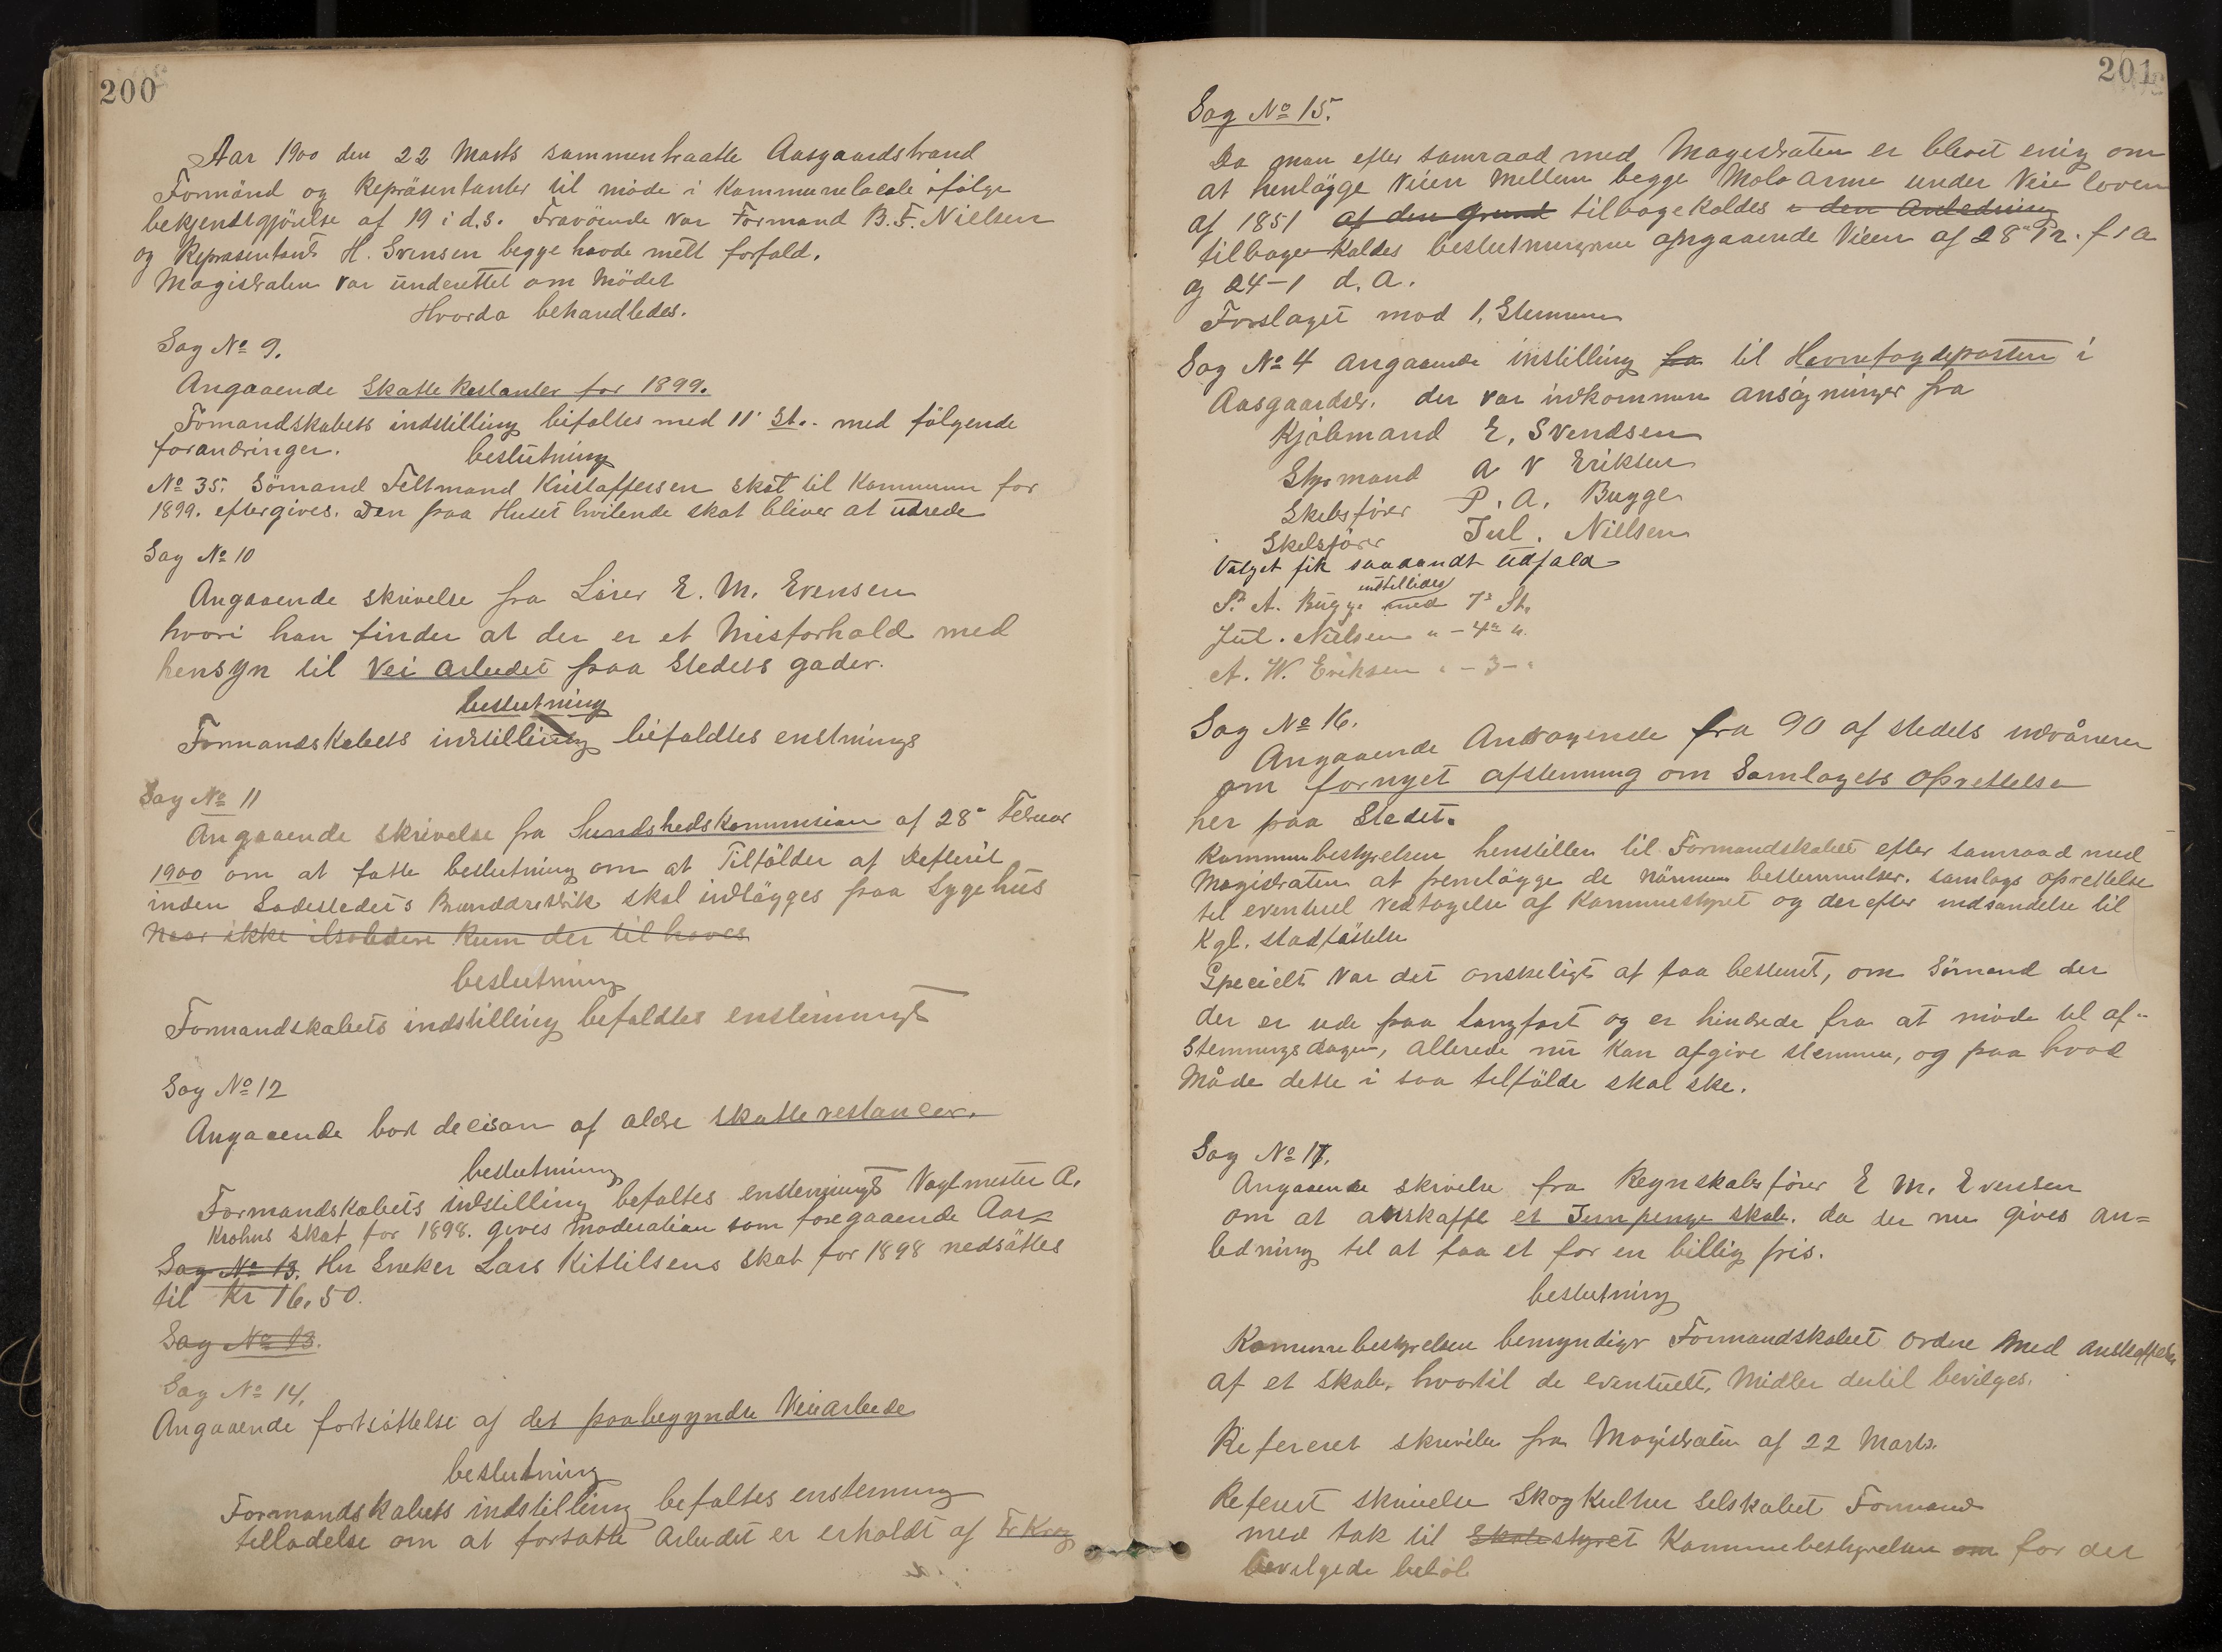 200
Aar 1900 den 22 Marts sammentraatte Aasgaardstrand
Formänd og Repräsentanter til möde i Kommunelocale ifölge
bekjendtgjörelse af 19 i d.s. Fraværende var Formand B. F. Nielsen
og Repræsentant H. Svensen begge havde melt forfald.
Magistraten var underettet om Mödet
Hvorda behandledes.
Sag No 9.
Angaaende Skatte Restanter for 1899.
Formandskabets indstilling bifaltes med 11 St. med fölgende
forandringer.
beslutning
No 35. Sömand Feltmand Kristoffersen skat til Kommunen for
1899. eftergives. Den paa Huset hvilende skat bliver at udrede
Sag No 10
Angaaende skrivelse fra Lærer E. M. Evensen
hvori han finder at der er et Misforhold med
hensyn til Vei arbeidet paa Stedets gader.
beslutning
Formandskabets indstilling bifaldtes enstmings
Sag No 11
Angaaende skrivelse fra Sundshedskommisian af 28 Februar
1900 om at fatte beslutning om at Tilfälder af Defterit
inden Ladestedets Branddistrik skal indlägges paa Sygehus
Naar ikke isoledere Rum der til haves
beslutning
Formandskabets indstilling befaldtes enstemmigt
Sag No 12
Angaaende bort decison af aldre skatterestancer.
beslutning
Formandskabets indstilling befaltes enstemmigt Vagtmester A.
Krohns skat for 1898. gives moderation som foregaaende Aar
Sag No 13. Hr Sneker Lars Kittilsens skat for 1898 nedsättes
til Kr 16.50.
Sag No 13.
Sag No 14.
Angaaende fortsættelse af det paabegyndte Veiarbeide
beslutning
Formandskabets indstilling befaltes enstemmig
tilladelse om at forsatte Arbeidet er erholdt af Fr Krog
201
Sag No 15.
Da man efter samraad med Magistraten er blevet enig om
at henlägge Veien mellem begge Molo Arme under Vei loven
af 1851 af den grund tilbagekaldes i den Anledning
tilbage kaldes beslutningerne angaaende Veien af 28 f. a
og 24-1 d. a.
Forslaget mod 1. Stemme
Sag No 4 angaaende instilling fra til Havnefogdeposten i
Aasgaardstr. der var indkommen ansøgninger fra
Kjöbmand E. Svendsen
Styrmand A V Eriksen
Skibsfører P. A. Bugge
Skibsfører Jul. Nielsen
Valget fik saadandt udfald
indstilledes
P. A. Bugge med 7 St.
Jul. Nielsen " - 4 "
A. W. Eriksen " - 3 - "
Sag No 16.
Angaaende Andragende fra 90 af stedets indvånere
om fornyet afstemning om Samlagets oprettelse
her paa Stedet.
Kommunbestyrelsen henstiller til Formandskabet efter samraad med
Magistraten at fremlägge de närmere bestemmelser. samlags oprettelse
til eventuel vedtagelse af Kommunstyret og derefter indsendelse til
Kgl. stadfästelse
Specielt var det ønskeligt at faa bestemt, om Sömænd der
der er ude paa langfart og er hindrede fra at møde til af-
stemningsdagen, allerede nu kan afgive stemme, og paa hvad
Måde dette i saa tilfälde skal ske.
Sag No 17.
Angaaende skrivelse fra Regnskabsfører E M. Evensen
om at anskaffe et Jernpenge skab. da der nu gives an=
ledning til at faa et for en billig pris.
beslutning
Kommunebestyrelsen bemyndiger Formandskabet ordne med anskaffelse
af et skab. hvortil de eventuelt, Midler dertil bevilges.
Refereret skrivelse fra Magistraten af 22 Marts.
Referert skrivelse Skogkultur Selskabet Formand
med tak til Skolestyret Kommunebestyrelsen om for det
bevilgede beløb